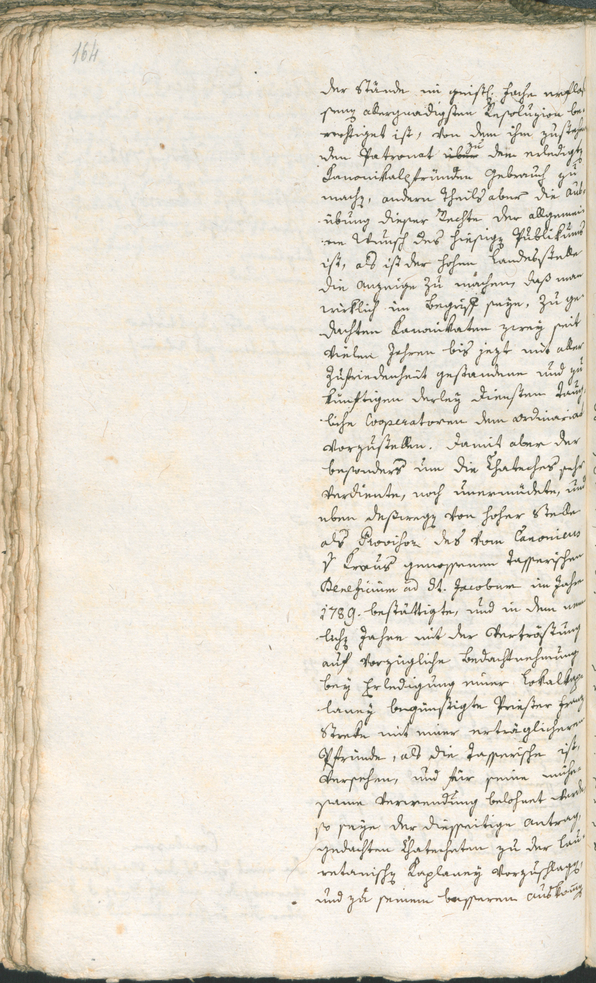 164
der Stände im geistl: Fache erflos
senen allergnädigsten Resoluzion be-
rechtiget ist, von dem ihm zustehen
den Patronat über den erledigten
Kanonikalpfründen Gebrauch zu
machen, andern Theils aber die Aus-
übung dieser Rechte der allgemei
ne Wunsch des hiesigen Publikums
ist, als ist der hohen Landesstelle
die Anzeige zu machen, daß man
wirklich im Begriff seye, zu ge-
dachten Kanonikaten zwey seit
vielen Jahren bis jezt mit aller
Zufriedenheit gestandene und zu
künftigen derley Diensten taug-
liche Cooperatoren dem Ordinariat
vorzustellen. Damit aber der
besonders um die Chateches sehr
verdiente, noch unermüdete, und
eben deßwegen von hoher Stelle
als Provisor des vom Canonicus
v Kraus genossenen Tasserischen
Beneficium ad St. Jacobum im Jahre
1789. bestättigte, und in dem nem
lichen Jahre mit der Vertröstung
auf vorzügliche Bedachtnehmung
bey Erledigung einer Lokalkap
laney begünstigte Priester Franz
Strele mit einer erträglicheren
Pfründe, als die Tasserische ist,
versehen, und für seine müh
same Verwendung belohnet werde
so seye der diesseitige Antrag,
gedachten Chatecheten zu der Lau-
retanischen Kaplaney vorzuschlagen,
und zu seinem besseren Auskommen